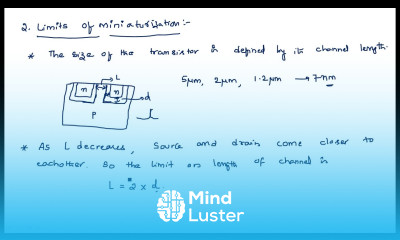 2. Limits of miniaturisation:-
* The size of the transistor is defined by its channel length.
L
5µm, 2µm, 1.2µm → 7nm
n n
d
P
* As L decreases, Source and drain come closer to
eachother. So the limit on length of channel is
L = 2 x d.
Mind
Luster